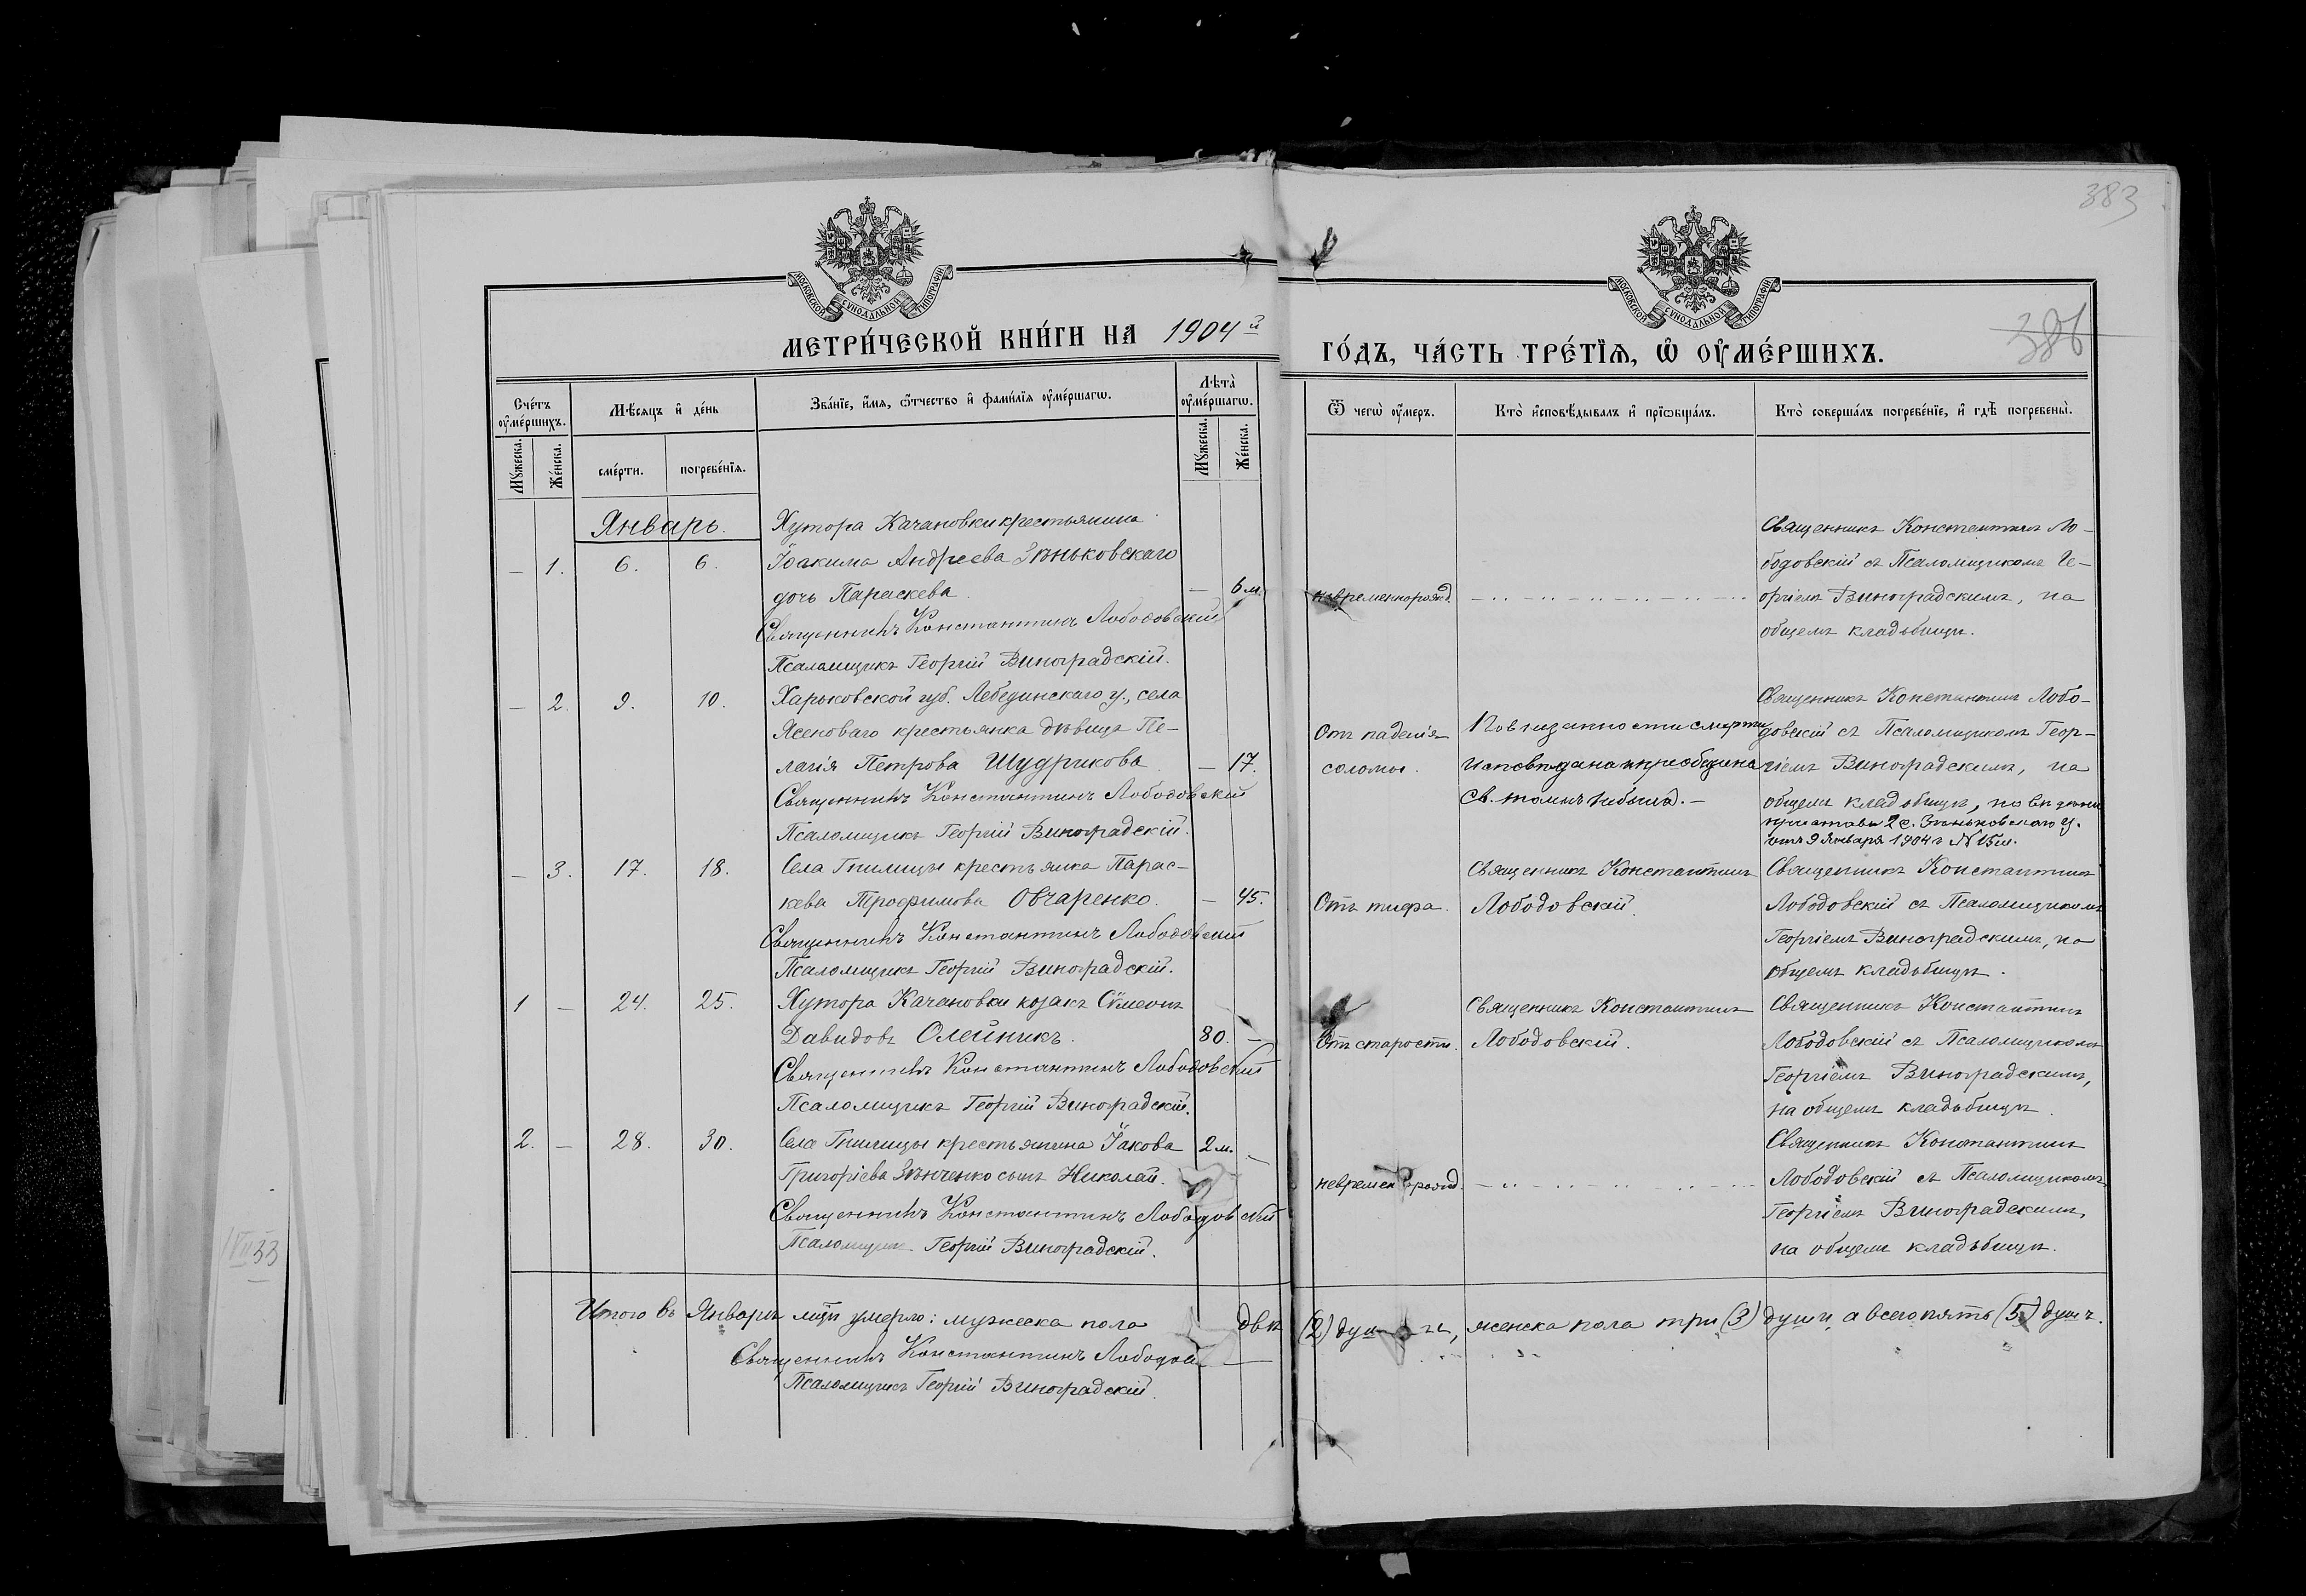 383
386
МОСКОВСКОЙ СѴНОДАЛЬНОЙ ТИПОГРАФІИ
МОСКОВСКОЙ СѴНОДАЛЬНОЙ ТИПОГРАФІИ
МЕТРИ́ЧЕСКОЙ КНИ́ГИ НА 1904й
ГО́ДЪ, ЧА́СТЬ ТРЕ́ТЇѦ, Ѡ҆ ОУ҆МЕ́РШИХЪ.
Сче́тъ оу҆ме́ршихъ.
Мѣ́сяцъ и҆ де́нь
Зва́нїе, и҆́мѧ, ѻ҆́тчество и҆ фами́лїѧ оу҆ме́ршагѡ.
Лѣта̀ оу҆ме́ршагѡ.
Ѿ чегѡ̀ оу҆́меръ.
Кто̀ и҆сповѣ́дывалъ и҆ прїѡбща́лъ.
Кто̀ соверша́лъ погребе́нїе, и҆ гдѣ̀ погребены̀.
Мꙋ́жеска.
Же́нска.
сме́рти.
погребе́нїѧ.
Мꙋ́жеска.
Же́нска.
Январь.
Хутора Качановки крестьянина
— 1. 6. 6. Іоакима Андреева Зѣньковскаго
дочь Параскева — 6 м.
Священникъ Константинъ Лободовскій
Псаломщикъ Георгій Виноградскій.
невременнорожд.
Священникъ Константинъ Ло-
бодовскій съ Псаломщикомъ Ге-
оргіемъ Виноградскимъ, на
общемъ кладбищѣ.
— 2. 9. 10. Харьковской губ. Лебединскаго у., села
Ясеноваго крестьянка дѣвица Пе-
лагія Петрова Шудрикова — 17.
Священникъ Константинъ Лободовскій
Псаломщикъ Георгій Виноградскій.
Отъ паденія
соломы.
По внезапности смерти
исповѣдана и пріобщена
св. таинъ не была. —
Священникъ Константинъ Лобо-
довскій съ Псаломщикомъ Геор-
гіемъ Виноградскимъ, на
общемъ кладбищѣ, по
пристава 2 с. Зѣньковскаго у.
отъ 9 Января 1904 г. №
— 3. 17. 18. Села Гнилицы крестьянка Парас-
кева Трофимова Овчаренко. — 45.
Священникъ Константинъ Лободовскій
Псаломщикъ Георгій Виноградскій.
Отъ тифа.
Священникъ Константинъ
Лободовскій.
Священникъ Константинъ
Лободовскій съ Псаломщикомъ
Георгіемъ Виноградскимъ, на
общемъ кладбищѣ.
1 — 24. 25. Хутора Качановки козакъ Сѵмеонъ
Давидовъ Олейникъ. 80. —
Священникъ Константинъ Лободовскій
Псаломщикъ Георгій Виноградскій.
Отъ старости.
Священникъ Константинъ
Лободовскій.
Священникъ Константинъ
Лободовскій съ Псаломщикомъ
Георгіемъ Виноградскимъ,
на общемъ кладбищѣ.
2. — 28. 30. Села Гнилицы крестьянина Іакова 2 м. —
Григоріева Зѣнченко сынъ Николай.
Священникъ Константинъ Лободовскій
Псаломщикъ Георгій Виноградскій.
невременорожд.
Священникъ Константинъ
Лободовскій съ Псаломщикомъ
Георгіемъ Виноградскимъ,
на общемъ кладбищѣ.
Итого въ Январѣ м҃цѣ умерло: мужеска пола двѣ (2) души, женска пола три (3) души, а всего пять (5) душъ.
Священникъ Константинъ Лободов
Псаломщикъ Георгій Виноградскій.